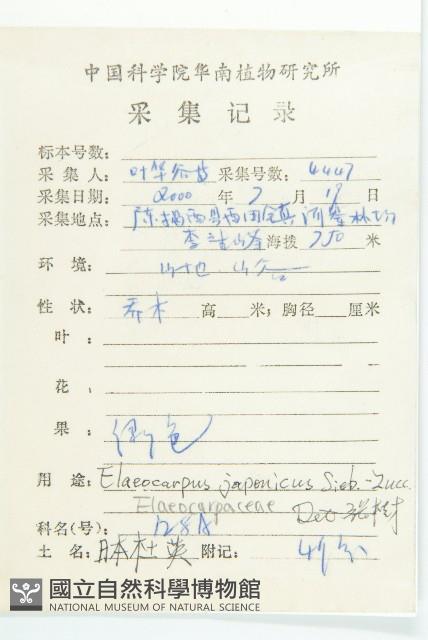 中国科学院华南植物研究所
采集记录
标本号数:
采集人: 叶华谷 采集号数: 4447
采集日期: 2000 年 7 月 19 日
采集地点: 广东揭西县西田镇河峯林场
李望峰 海拨 750 米
环境: 山地 山谷
性状: 乔木 高 米; 胸径 厘米
叶:
花:
果: 绿色
用途: Elaeocarpus japonicus Sieb. Zucc.
Elaeocarpaceae Det
科名(号): 128A
土名: 日本杜英 附记:
國立自然科學博物館
NATIONAL MUSEUM OF NATURAL SCIENCE